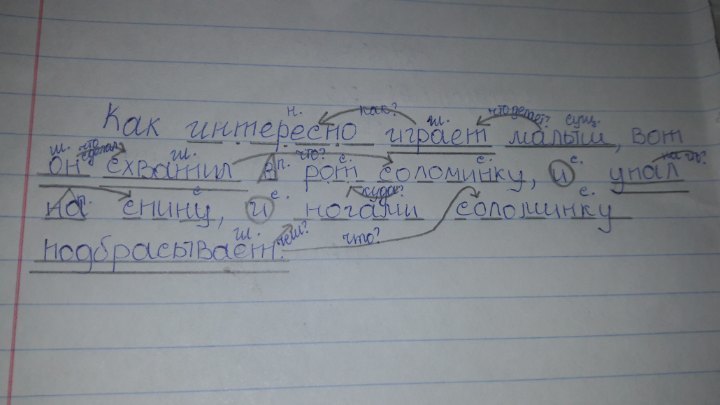 н. как? гл. что делает? сущ.
Как интересно играет малыш, вот
м. что сделал? гл. п. что? с. с. с. на что?
он схватил в рот соломинку, и упал
п. с. с. куда? с.
на спину, и ногами соломинку
гл. чем? что?
подбрасывает.